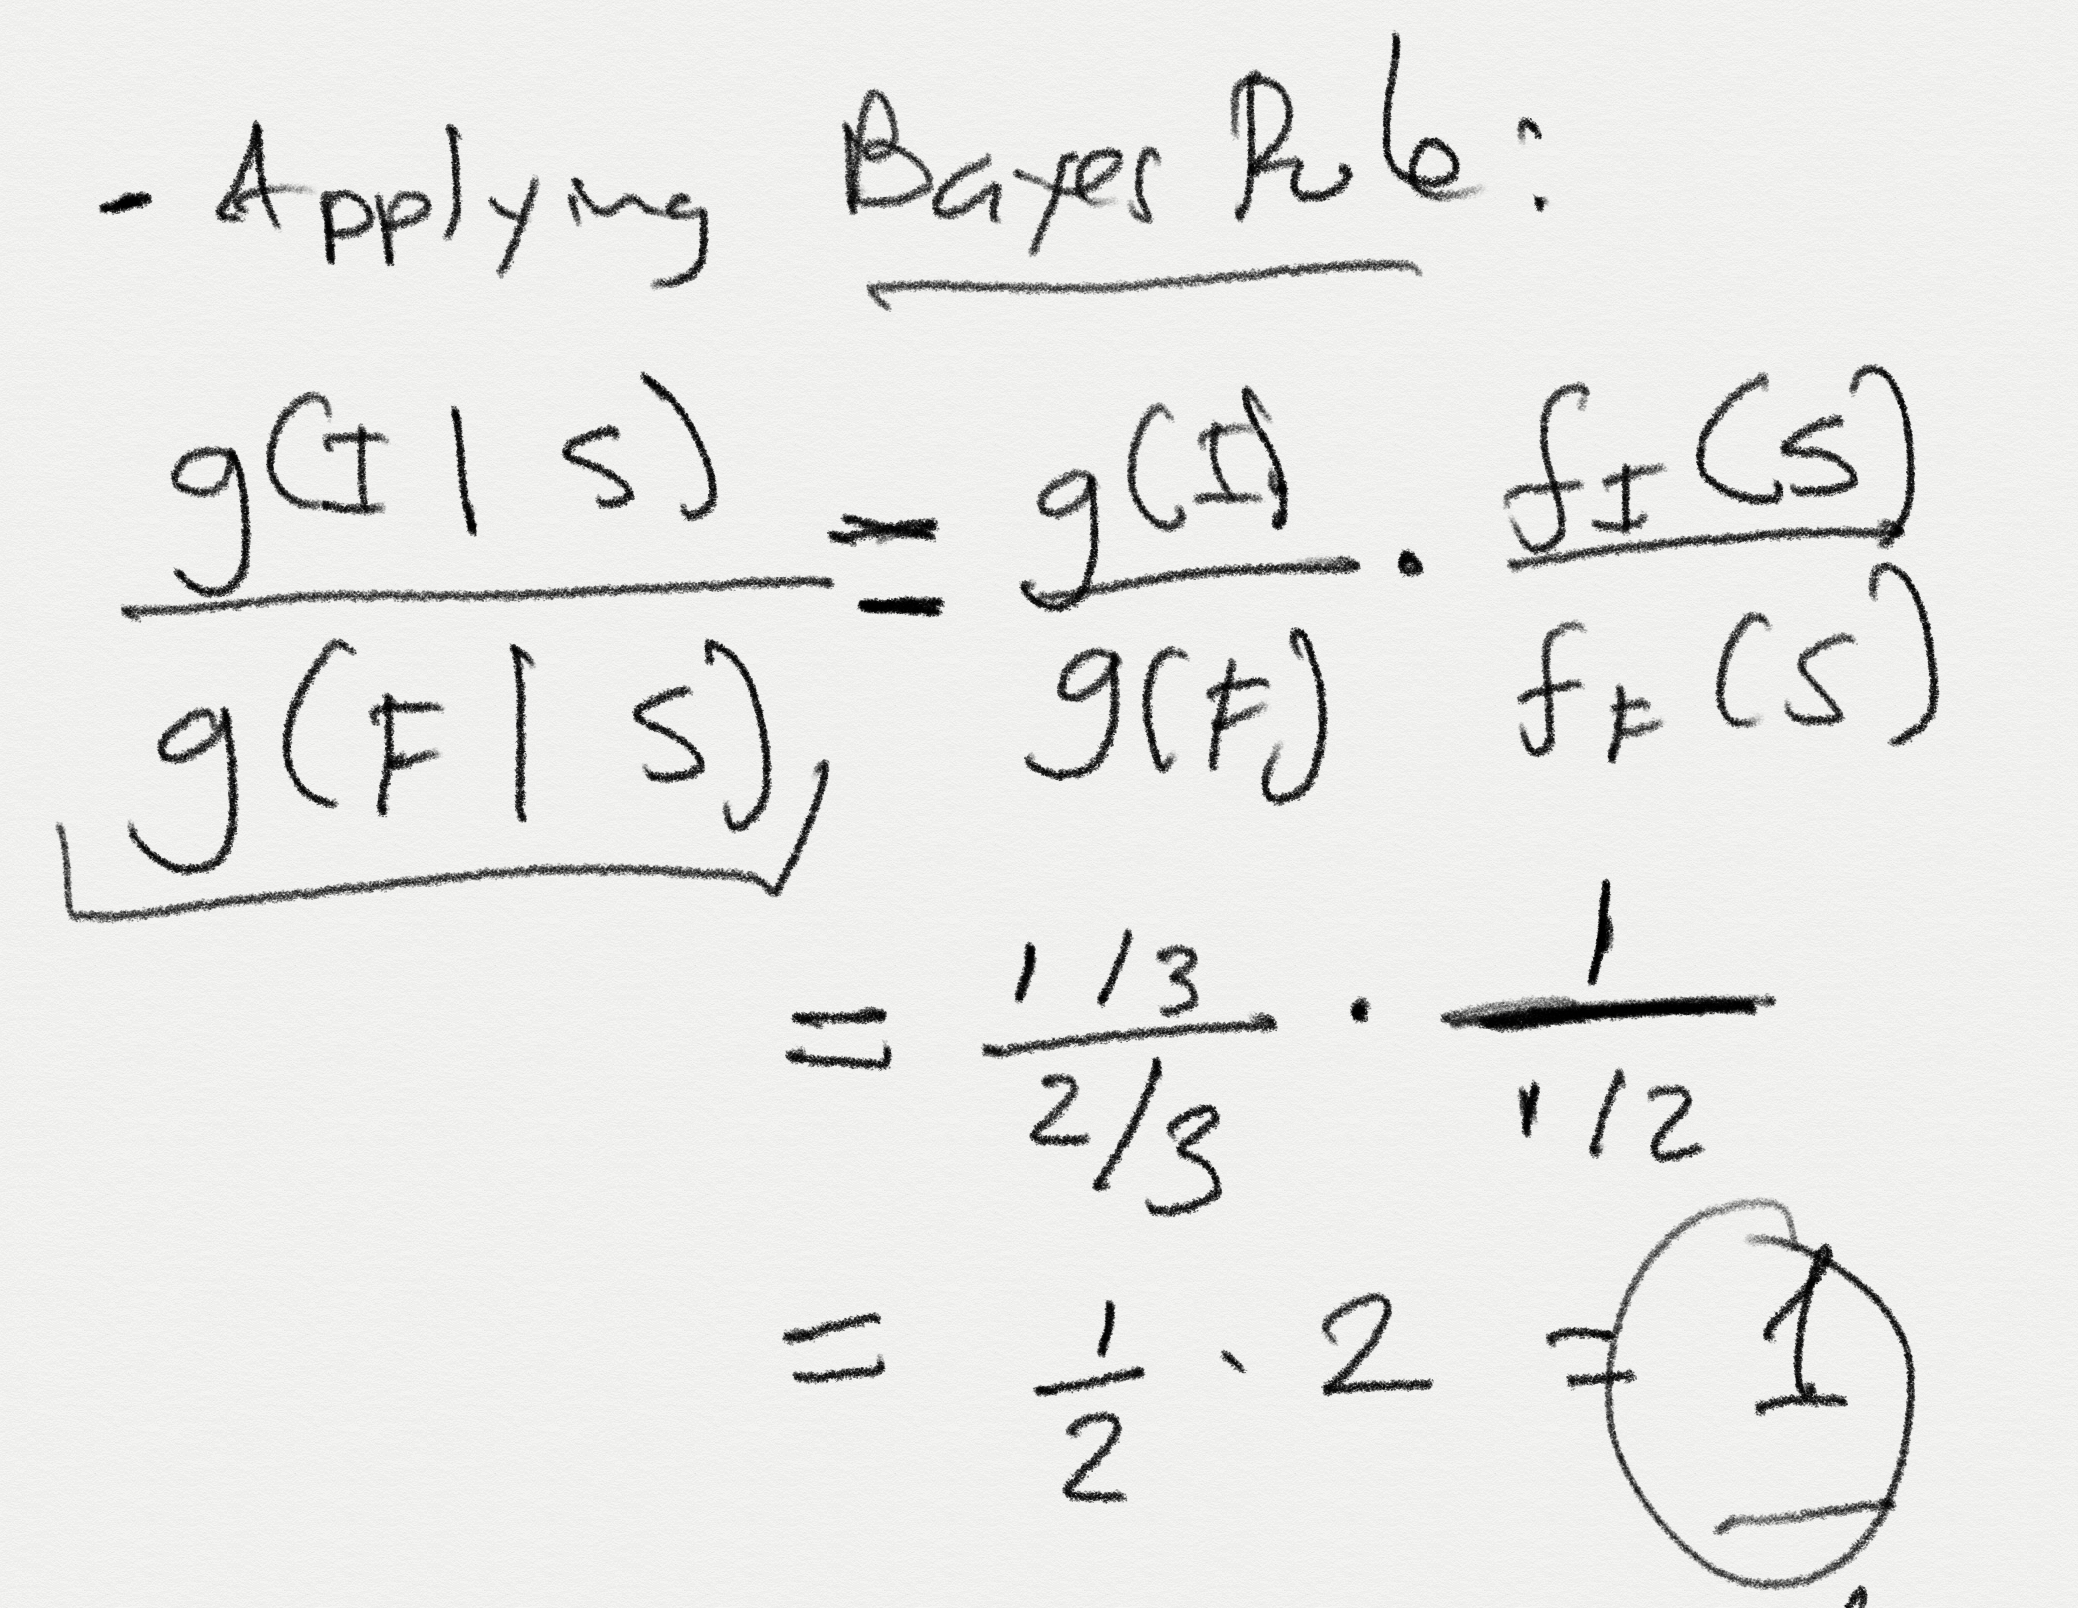 - Applying Bayes Rule:
g(I | S) / g(F | S) = g(I) / g(F) · f_I(S) / f_F(S)
= 1/3 / 2/3 · 1 / 1/2
= 1/2 · 2 = 1